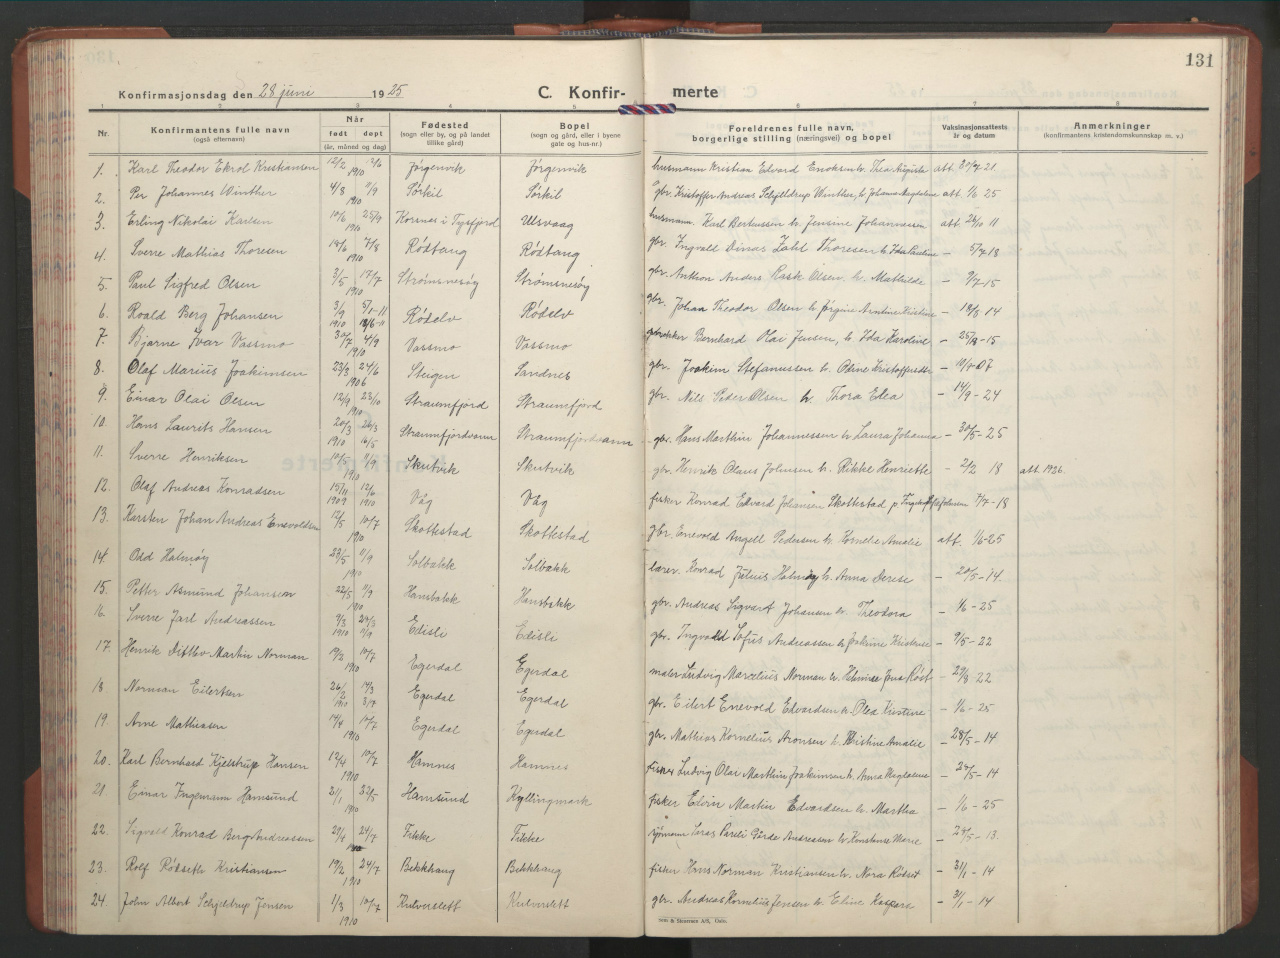 131
Konfirmasjonsdag den 28 juni 1925 C. Konfirmerte
1 2 3 4 5 6 7 8
Nr. Konfirmantens fulle navn (også efternavn) Når født døpt (år, måned og dag) Fødested (sogn eller by, og på landet tillike gård) Bopel (sogn og gård, eller i byene gate og hus-nr.) Foreldrenes fulle navn, borgerlige stilling (næringsvei) og bopel Vaksinasjonsattests år og datum Anmerkninger (konfirmantens kristendomskunnskap m. v.)
1. Karl Theodor Ekrol Kristiansen 12/2 12/6 1910 Jørgenvik Jørgenvik husmann Kristian Edvard Enoksen h. Thea Auguste att 30/4 21
2. Per Johannes Winther 4/8 11/9 1910 Sørkil Sørkil gbr. Kristoffer Andreas Schjelldrup Winther, h. Johanna Magdalene att 1/6 25
3. Erling Nikolai Karlsen 10/6 25/9 1910 Korsnes i Tysfjord Ulsvaag husmann. Karl Berntussen h. Jensine Johannessen att 26/10 11
4. Sverre Mathias Thoresen 18/6 7/8 1910 Rødtang Rødtang gbr. Ingvald Dinas Zahl Thoresen h. Ida Pauline – 5/7 18
5. Paul Sigfred Olsen 3/5 17/7 1910 Strømsnesøy Strømsnesøy gbr. Anthon Anders Rask Olsen h. Mathilde – 9/7-15
6. Roald Berg Johansen 3/9 1910 Rødelv Rødelv gbr. Johan Theodor Olsen h. Jørgine Arntine Kristine – 18/8 14
7. Bjarne Ivar Vassmo 30/7 4/9 1910 Vassmo Vassmo Bernhard Olai Jensen, h. Ida Karoline – 25/8-15
8. Olaf Marius Joakimsen 23/3 24/6 1906 Steigen Sandnes gbr. Joakim Stefanussen h. Oline Kristoffersdtr – 10/4 07
9. Einar Olai Olsen 12/9 23/10 1910 Straumfjord Straumfjord gbr. Nils Peder Olsen h. Thora Elea – 14/9-24
10. Hans Laurits Hansen 20/3 26/3 1910 Straumfjordvann Straumfjordvann gbr. Hans Marthin Johannessen h. Laura Johanna – 30/5-25
11. Sverre Henriksen 10/5 11/9 1910 Skutvik Skutvik gbr. Henrik Olaus Johnsen h. Rikke Henriette – 2/2 18 att. 1926.
12. Olaf Andreas Konradsen 15/11 1909 12/6 1910 Våg Våg fisker Konrad Edvard Johansen Skottestad 7/7-18
13. Karsten Johan Andreas Enevoldsen 12/5 10/7 1910 Skottestad Skottestad gbr. Enevold Angell Pedersen h. Kornelie Amalie att. 1/6-25
14. Odd Halmøy 23/5 11/9 1910 Solbakk Solbakk lærer. Konrad Julius Halmøy h. Anna Derise – 20/5-14.
15. Petter Asmund Johansen 22/5 11/9 1910 Hansbakk Hansbakk gbr. Andreas Sigvart Johansen h. Theodora – 1/6-25
16. Sverre Jarl Andreassen 9/3 1910 Edisli Edisli gbr. Ingvald Sofus Andreassen h. Joakime Kristense – 9/5-22
17. Henrik Ditlev Martin Norman 19/2 10/7 1910 Egerdal Egerdal maler Ludvig Marcelius Norman h. Helmine Jona Røst – 29/8-22
18 Norman Eilertsen 26/2 1910 Egerdal Egerdal gbr. Eilert Enevold Edvardsen h. Olea Kristine – 1/6-25
19. Arne Mathissen 14/4 17/7 1910 Egerdal Egerdal gbr. Mathias Kornelius Aronsen h. Kristine Amalie – 28/5-14
20. Karl Bernhard Kjelstrup Hansen 12/4 10/7 1910 Hamnes Hamnes fisker Ludvig Olai Marthin Joakimsen h. Anna Magdalene – 24/5-14
21. Einar Ingemann Hamsund 21/1 1910 Hamsund Kyllingmark fisker Edvin Martin Edvardsen h. Martha – 1/6-25
22. Sigvald Konrad Berg Andreassen 29/4 24/7 1910 Fikke Fikke Andreassen h. Konstanse Marie – 24/5-13.
23. Rolf Rødseth Kristiansen 19/2 24/7 1910 Bekkhaug Bekkhaug fisker Hans Norman Kristiansen h. Nora Rødset – 31/1-14
24. John Albert Schjeltrup Jensen 1/3 10/7 1910 gbr. Andreas Kornelius Jensen h. Eline Kaspara – 31/1-14